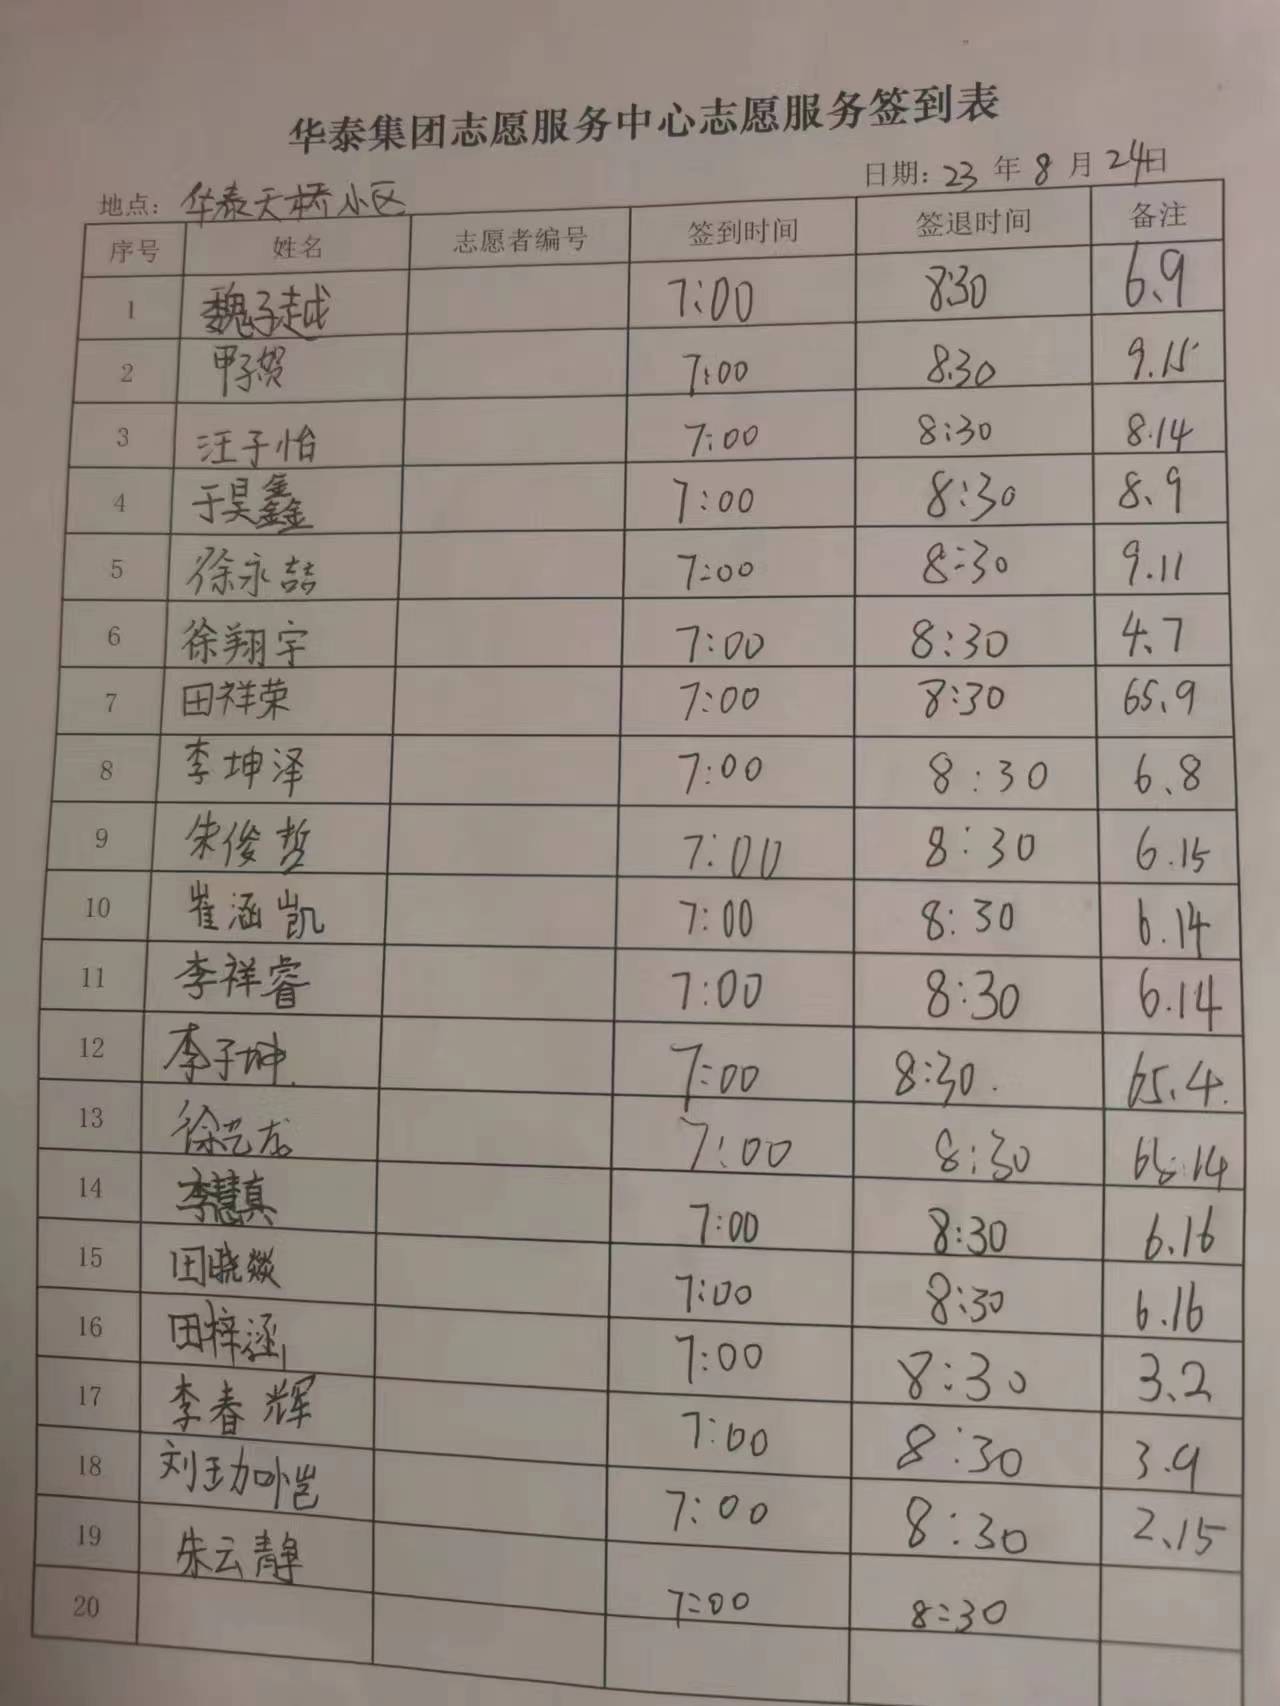 华泰集团志愿服务中心志愿服务签到表
地点：华泰天桥小区 日期：23 年 8 月 24日
序号 姓名 志愿者编号 签到时间 签退时间 备注
1 魏子越 7:00 8:30 6.9
2 7:00 8.30 9.15
3 汪子怡 7:00 8:30 8.14
4 于昊鑫 7:00 8:30 8.9
5 徐永喆 7:00 8:30 9.11
6 徐翔宇 7:00 8:30 4.7
7 田祥荣 7:00 8:30 65.9
8 李坤泽 7:00 8:30 6.8
9 朱俊哲 7:00 8:30 6.15
10 崔涵凯 7:00 8:30 6.14
11 李祥睿 7:00 8:30 6.14
12 李子坤 7:00 8:30. 65.4.
13 徐艺龙 7:00 8:30
14 李慧真 7:00 8:30 6.16
15 田晓燚 7:00 8:30 6.16
16 田梓涵 7:00 8:30 3.2
17 李春辉 7:00 8:30 3.9
18 7:00 8:30 2.15
19 朱云静 7:00 8:30
20